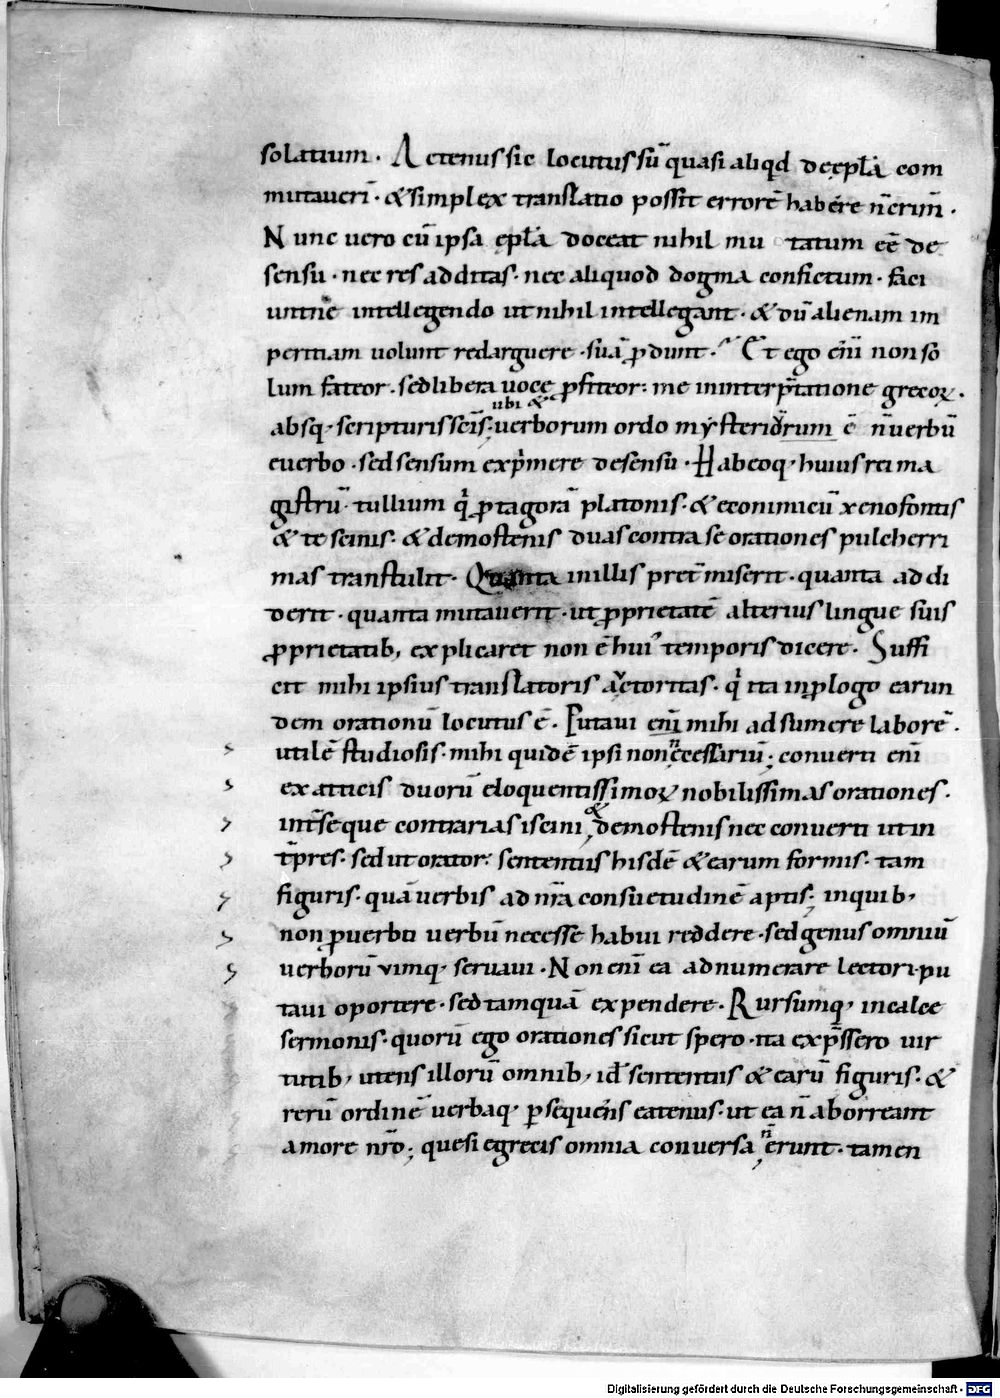 solatium · Actenus sic locutus sū quasi aliqd de epła com
mutaverī · & simplex translatio possit errorē habere n̄ crim̄ ·
Nunc vero cū ipsa epła doceat nihil mu tatum eē de
sensu · nec res additas · nec aliquod dogma confictum · faci
untne intellegendo ut nihil intellegant · & dū alienam im
peritiam volunt redarguere · suā ꝓdunt · Et ego enī non so
lum fateor · sed libera voce ꝓfiteor: me in interp̄tatione grecoꝝ ·
ubi &
absq, scripturis scīs; verborum ordo mysteriorum ē n̄ verbū
e verbo · sed sensum exp̄mere de sensu · Habeoq, huius rei ma
gistrū · tullium q̇ ꝓtagorā platonis · & econimicū xenofontis
& te scinis · & demostenis duas contra se orationes pulcherri
mas transtulit · Quanta in illis pret̄miserit · quanta addi
derit · quanta mutaverit · ut ꝓprietatē alterius lingue suis
ꝓprietatib, explicaret non ē hui' temporis dicere · Suffi
cit mihi ipsius translatoris auctoritas · q̇ ita in ꝓlogo earun
dem orationū locutus ē · Putavi enī mihi adsumere laborē ·
utilē studiosis · mihi quidē ipsi non necessariū; converti enī
ex atticis duorū eloquentissimoꝝ nobilissimas orationes ·
int̄ seque contrarias iscini & demostenis nec converti ut in
t̄pres · sed ut orator: sententiis hisdē & earum formis · tam
figuris · quā verbis ad nr̄a consuetudinē aptis; in quib,
non ꝓ verbo verbū necesse habui reddere · sed genus omniū
verborū vimq, servavi · Non enī ea adnumerare lectori pu
tavi oportere · sed tamquā expendere · Rursumq, in calce
sermonis · quorū ego orationes sicut spero · ita exp̄ssero vir
tutib, utens illorū omnib, id ÷ sententiis & earū figuris · &
rerū ordine verbaq, ꝑsequens eatenus · ut ea n̄ aborreant
a more nr̄o; que si e grecis omnia conversa n̄ erunt · tamen
Digitalisierung gefördert durch die Deutsche Forschungsgemeinschaft - DFG